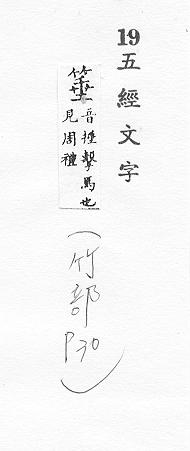 19五經文字
箠 音捶擊馬也
見周禮
(竹部
P30)